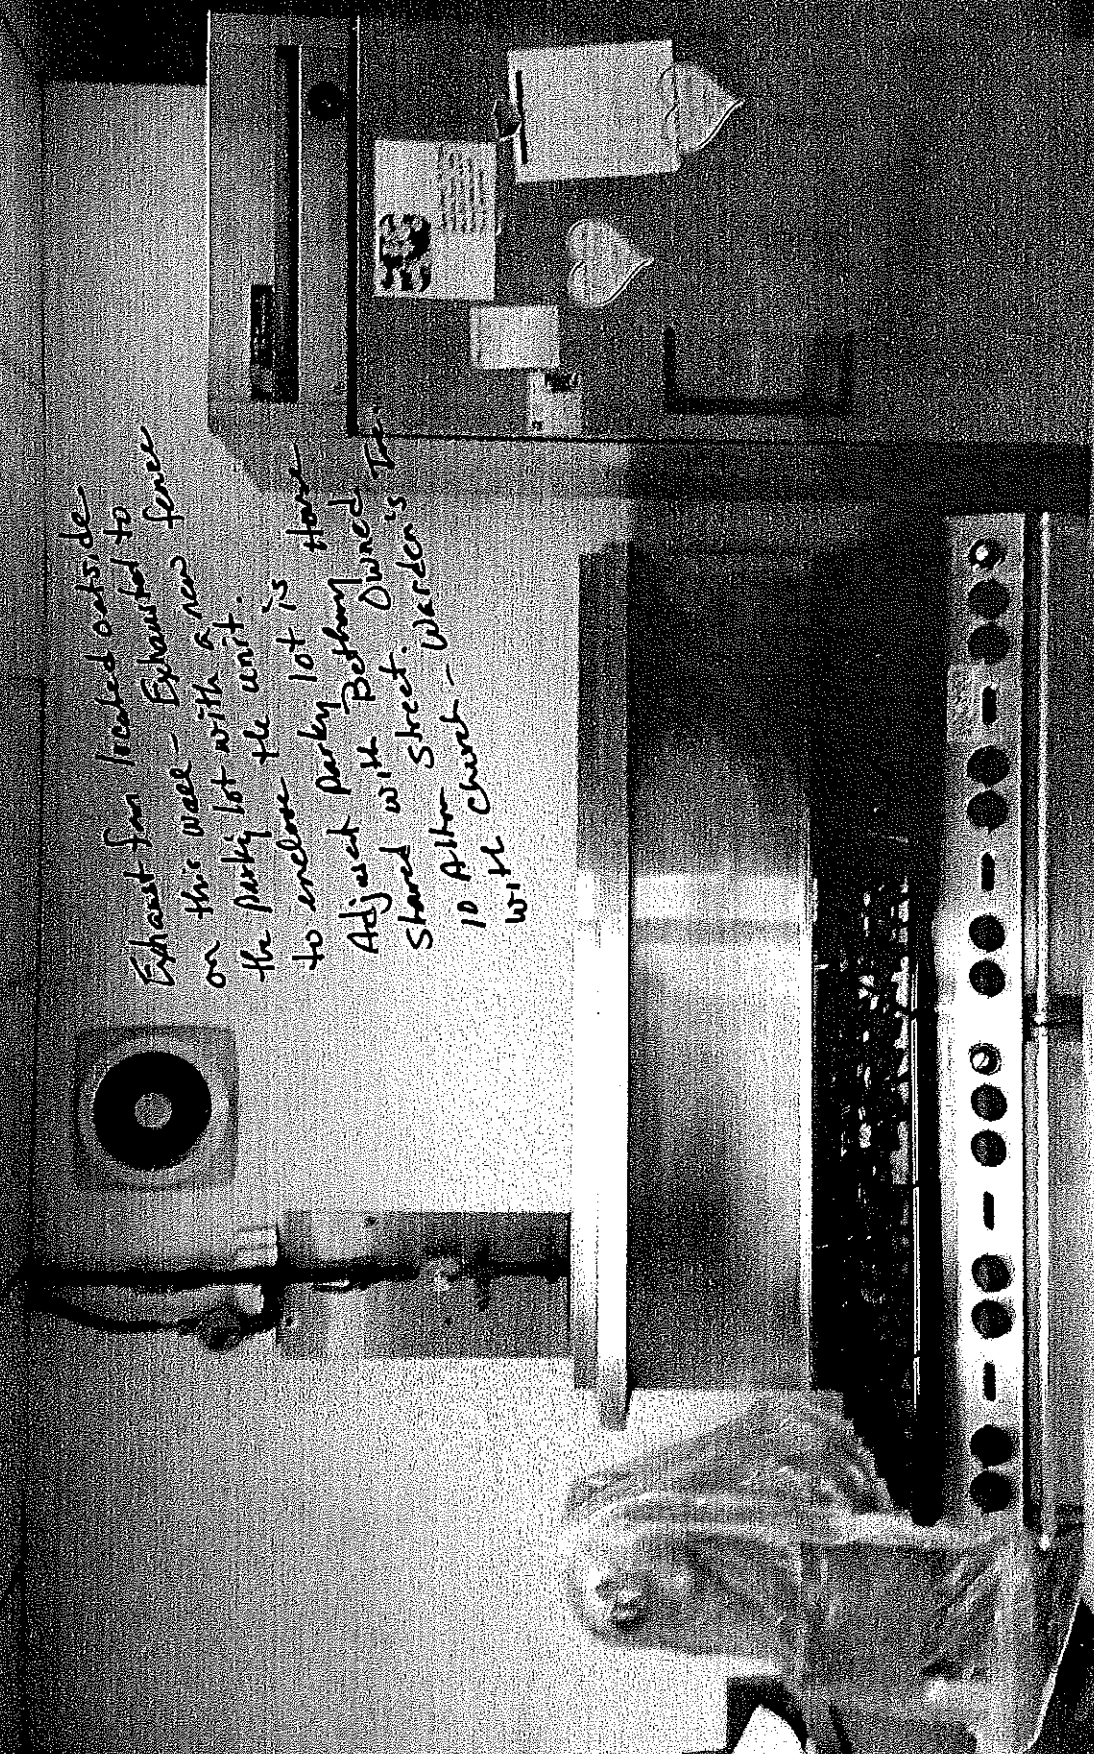 Exhaust fan located outside
on this wall - Exhausted to
the parking lot with a new fence
to enclose the unit.
Adjacent parking lot is
Shared with Bethany House
10 Alton Street. Owned
with church - Warden's Tr.